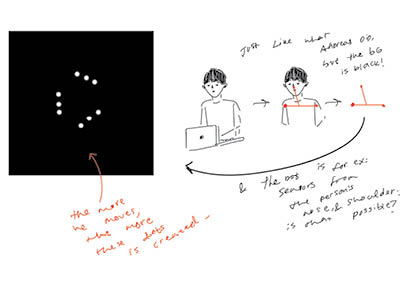 Just like what
Andreas did,
but the bg
is black!
& the dots is for ex:
sensors from
the person's
nose & shoulder.
is that possible?
the more
he moves,
the more
these dots
is created -